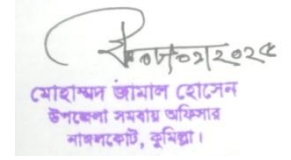 মোহাম্মদ জামাল হোসেন
উপজেলা সমবায় অফিসার
নাঙ্গলকোট, কুমিল্লা।